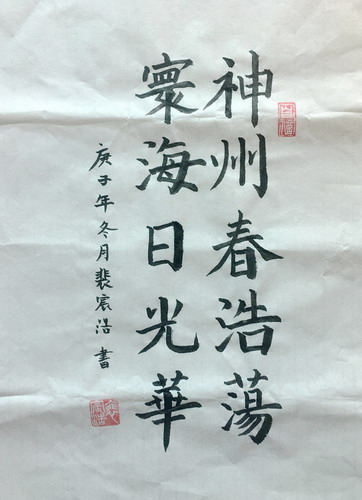 神州春浩蕩
寰海日光華
庚子年冬月裴宸浩書